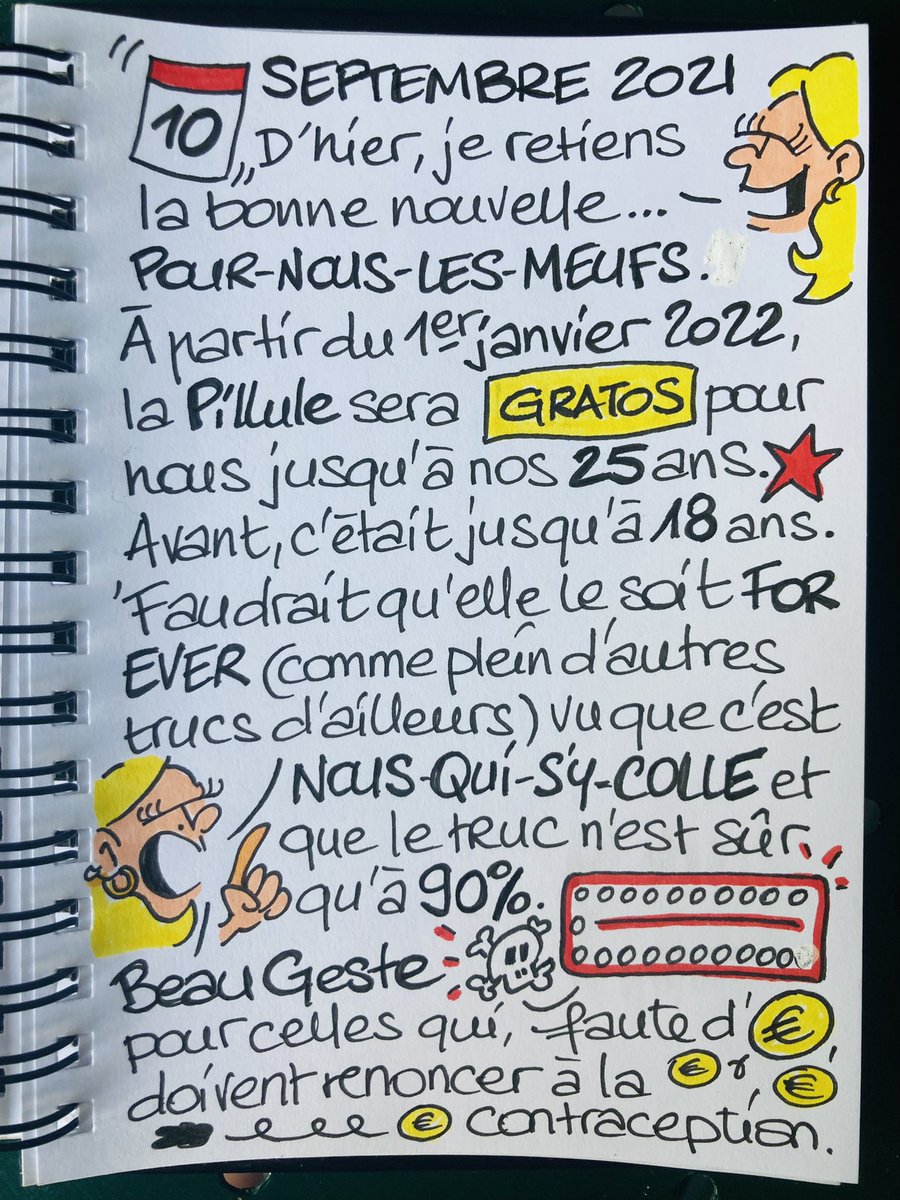 " 10 SEPTEMBRE 2021
„D'hier, je retiens
la bonne nouvelle...
POUR-NOUS-LES-MEUFS.
À partir du 1er janvier 2022,
la Pillule sera GRATOS pour
nous jusqu'à nos 25 ans.
Avant, c'était jusqu'à 18 ans.
'Faudrait qu'elle le soit FOR
EVER (comme plein d'autres
trucs d'ailleurs) vu que c'est
NOUS-QUI-S'Y-COLLE et
que le truc n'est sûr
qu'à 90%.
BEAU GESTE
pour celles qui, faute d'€,
doivent renoncer à la € €
€ contraception.